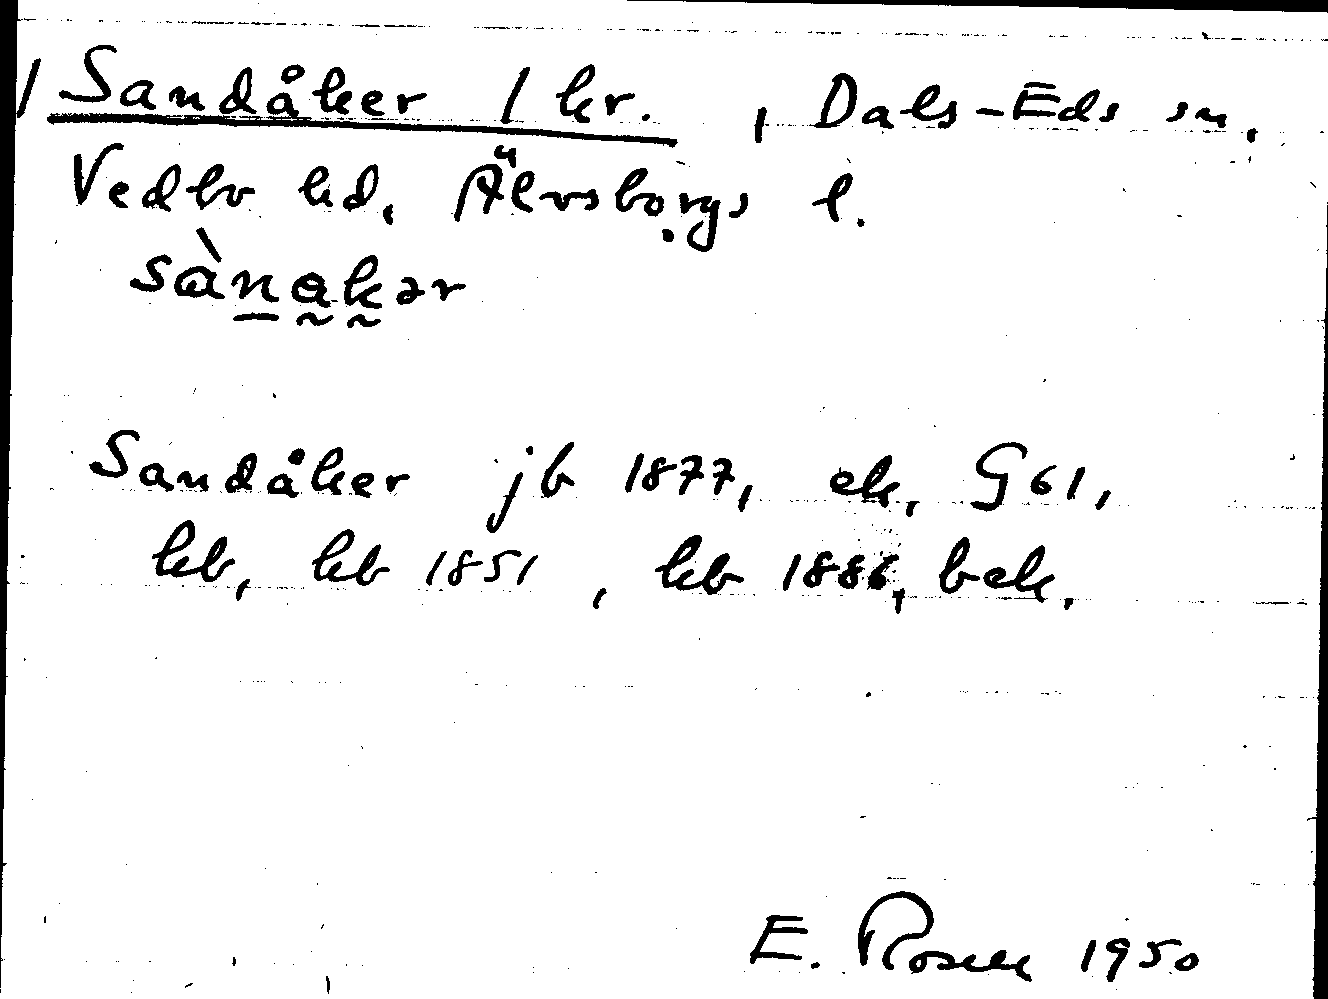 / Sandåker 1 hr. , Dals-Eds sn,
Vedbo hd, Älvsborgs l.
sànakər
Sandåker jb 1877, ek, G 61,
hb, hb 1851 , kb 1886, bek.
E. Rosell 1950